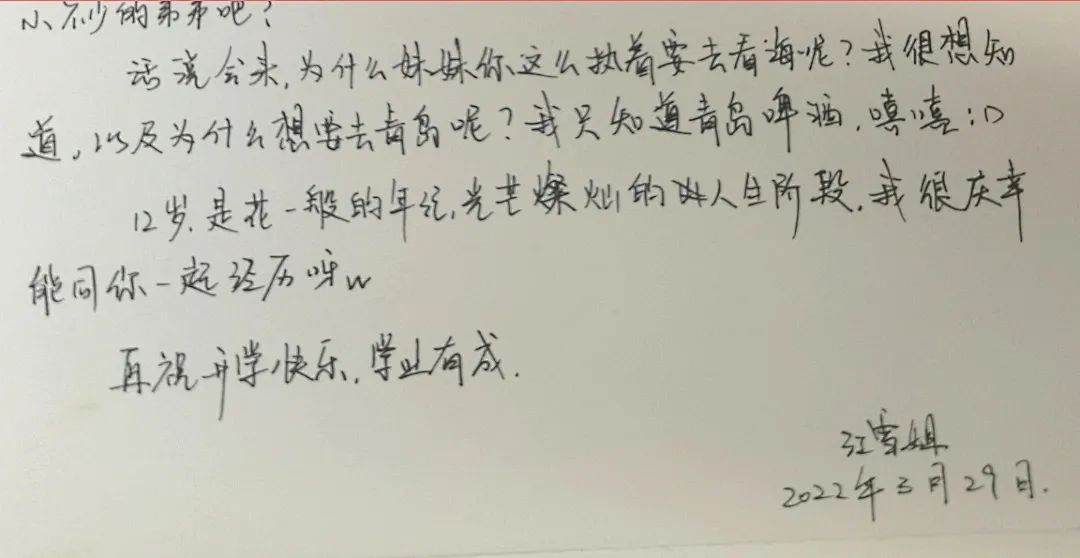 小不少的弟弟吧？
话说会来，为什么妹妹你这么执着要去看海呢？我很想知
道，以及为什么想要去青岛呢？我只知道青岛啤酒，嘻嘻：D
12岁，是花一般的年纪，光芒灿烂的人生阶段，我很庆幸
能同你一起经历呀w
再祝开学快乐，学业有成．
江雪姐
2022年3月29日．